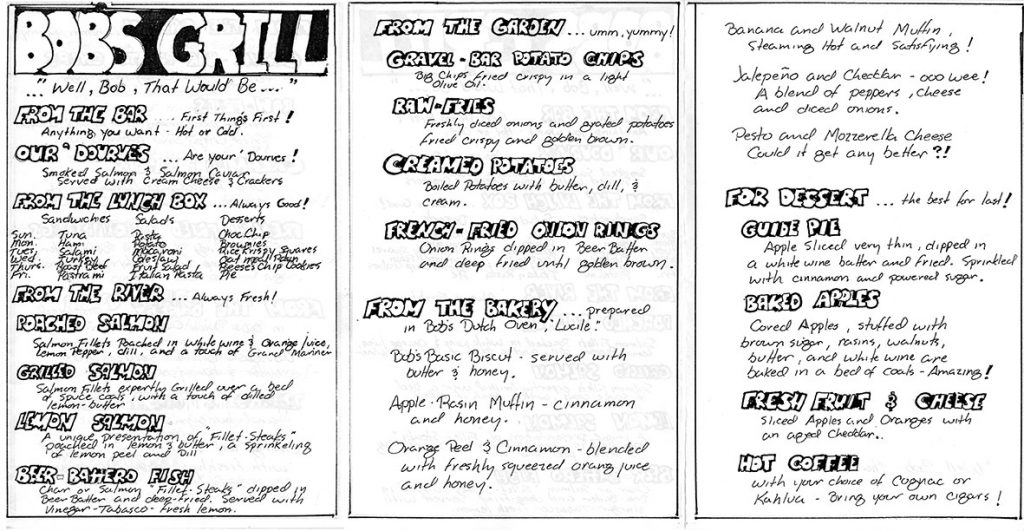 BOBS GRILL
"... Well, Bob, That Would Be ... "
FROM THE BAR ... First Thing's First!
Anything you want - Hot or Cold.
OUR 'DOURVES ... Are your 'Dourves!
Smoked Salmon & Salmon Caviar
Served with Cream Cheese & Crackers
FROM THE LUNCH BOX ... Always Good!
Sandwiches Salads Desserts
Sun. Tuna Pasta Choc Chip
Mon. Ham Potato Brownies
Tues. Salami Macaroni Rice Krispy Squares
Wed. Turkey Coleslaw Oatmeal Raisin
Thurs. Roast Beef Fruit Salad Reeses Chip Cookies
Fri. Pastrami Italian Pasta Pie
FROM THE RIVER ... Always Fresh!
POACHED SALMON
Salmon Fillets Poached in White wine & Orange juice,
lemon Pepper, dill, and a touch of Grand Mariner
GRILLED SALMON
Salmon Fillets expertly Grilled over a bed
of spuce coals, with a touch of dilled
lemon-butter
LEMON SALMON
A unique presentation of "Fillet-Steaks"
poached in lemon & butter, a sprinkeling
of lemon peel and Dill
BEER-BATTERD FISH
Charr or Salmon "Fillet-Steaks" dipped in
Beer Batter and deep-fried. Served with
Vinegar-Tabasco-Fresh lemon.
FROM THE GARDEN ... umm, yummy!
GRAVEL-BAR POTATO CHIPS
Big Chips fried crispy in a light
Olive Oil.
RAW-FRIES
Freshly diced onions and grated potatoes
fried crispy and golden brown.
CREAMED POTATOES
Boiled Potatoes with butter, dill, &
cream.
FRENCH-FRIED ONION RINGS
Onion Rings dipped in Beer Batter
and deep fried until golden brown.
FROM THE BAKERY ... prepared
in Bob's Dutch Oven, "Lucile".
Bob's Basic Biscut - served with
butter & honey.
Apple-Rasin Muffin - cinnamon
and honey.
Orange Peel & Cinnamon - blended
with freshly squeezed orang juice
and honey.
Banana and Walnut Muffin,
Steaming Hot and Satisfying!
Jalepeño and Cheddar - ooo wee!
A blend of peppers, cheese
and diced onions.
Pesto and Mozzerella Cheese
Could it get any better?!
FOR DESSERT ... the best for last!
GUIDE PIE
Apple Sliced very thin, dipped in
a white wine batter and fried. Sprinkled
with cinnamon and powered sugar.
BAKED APPLES
Cored Apples, stuffed with
brown sugar, rasins, walnuts,
butter, and white wine are
baked in a bed of coals - Amazing!
FRESH FRUIT & CHEESE
Sliced Apples and Oranges with
an aged Cheddar..
HOT COFFEE
with your choice of Cognac or
Kahlua - Bring your own cigars!